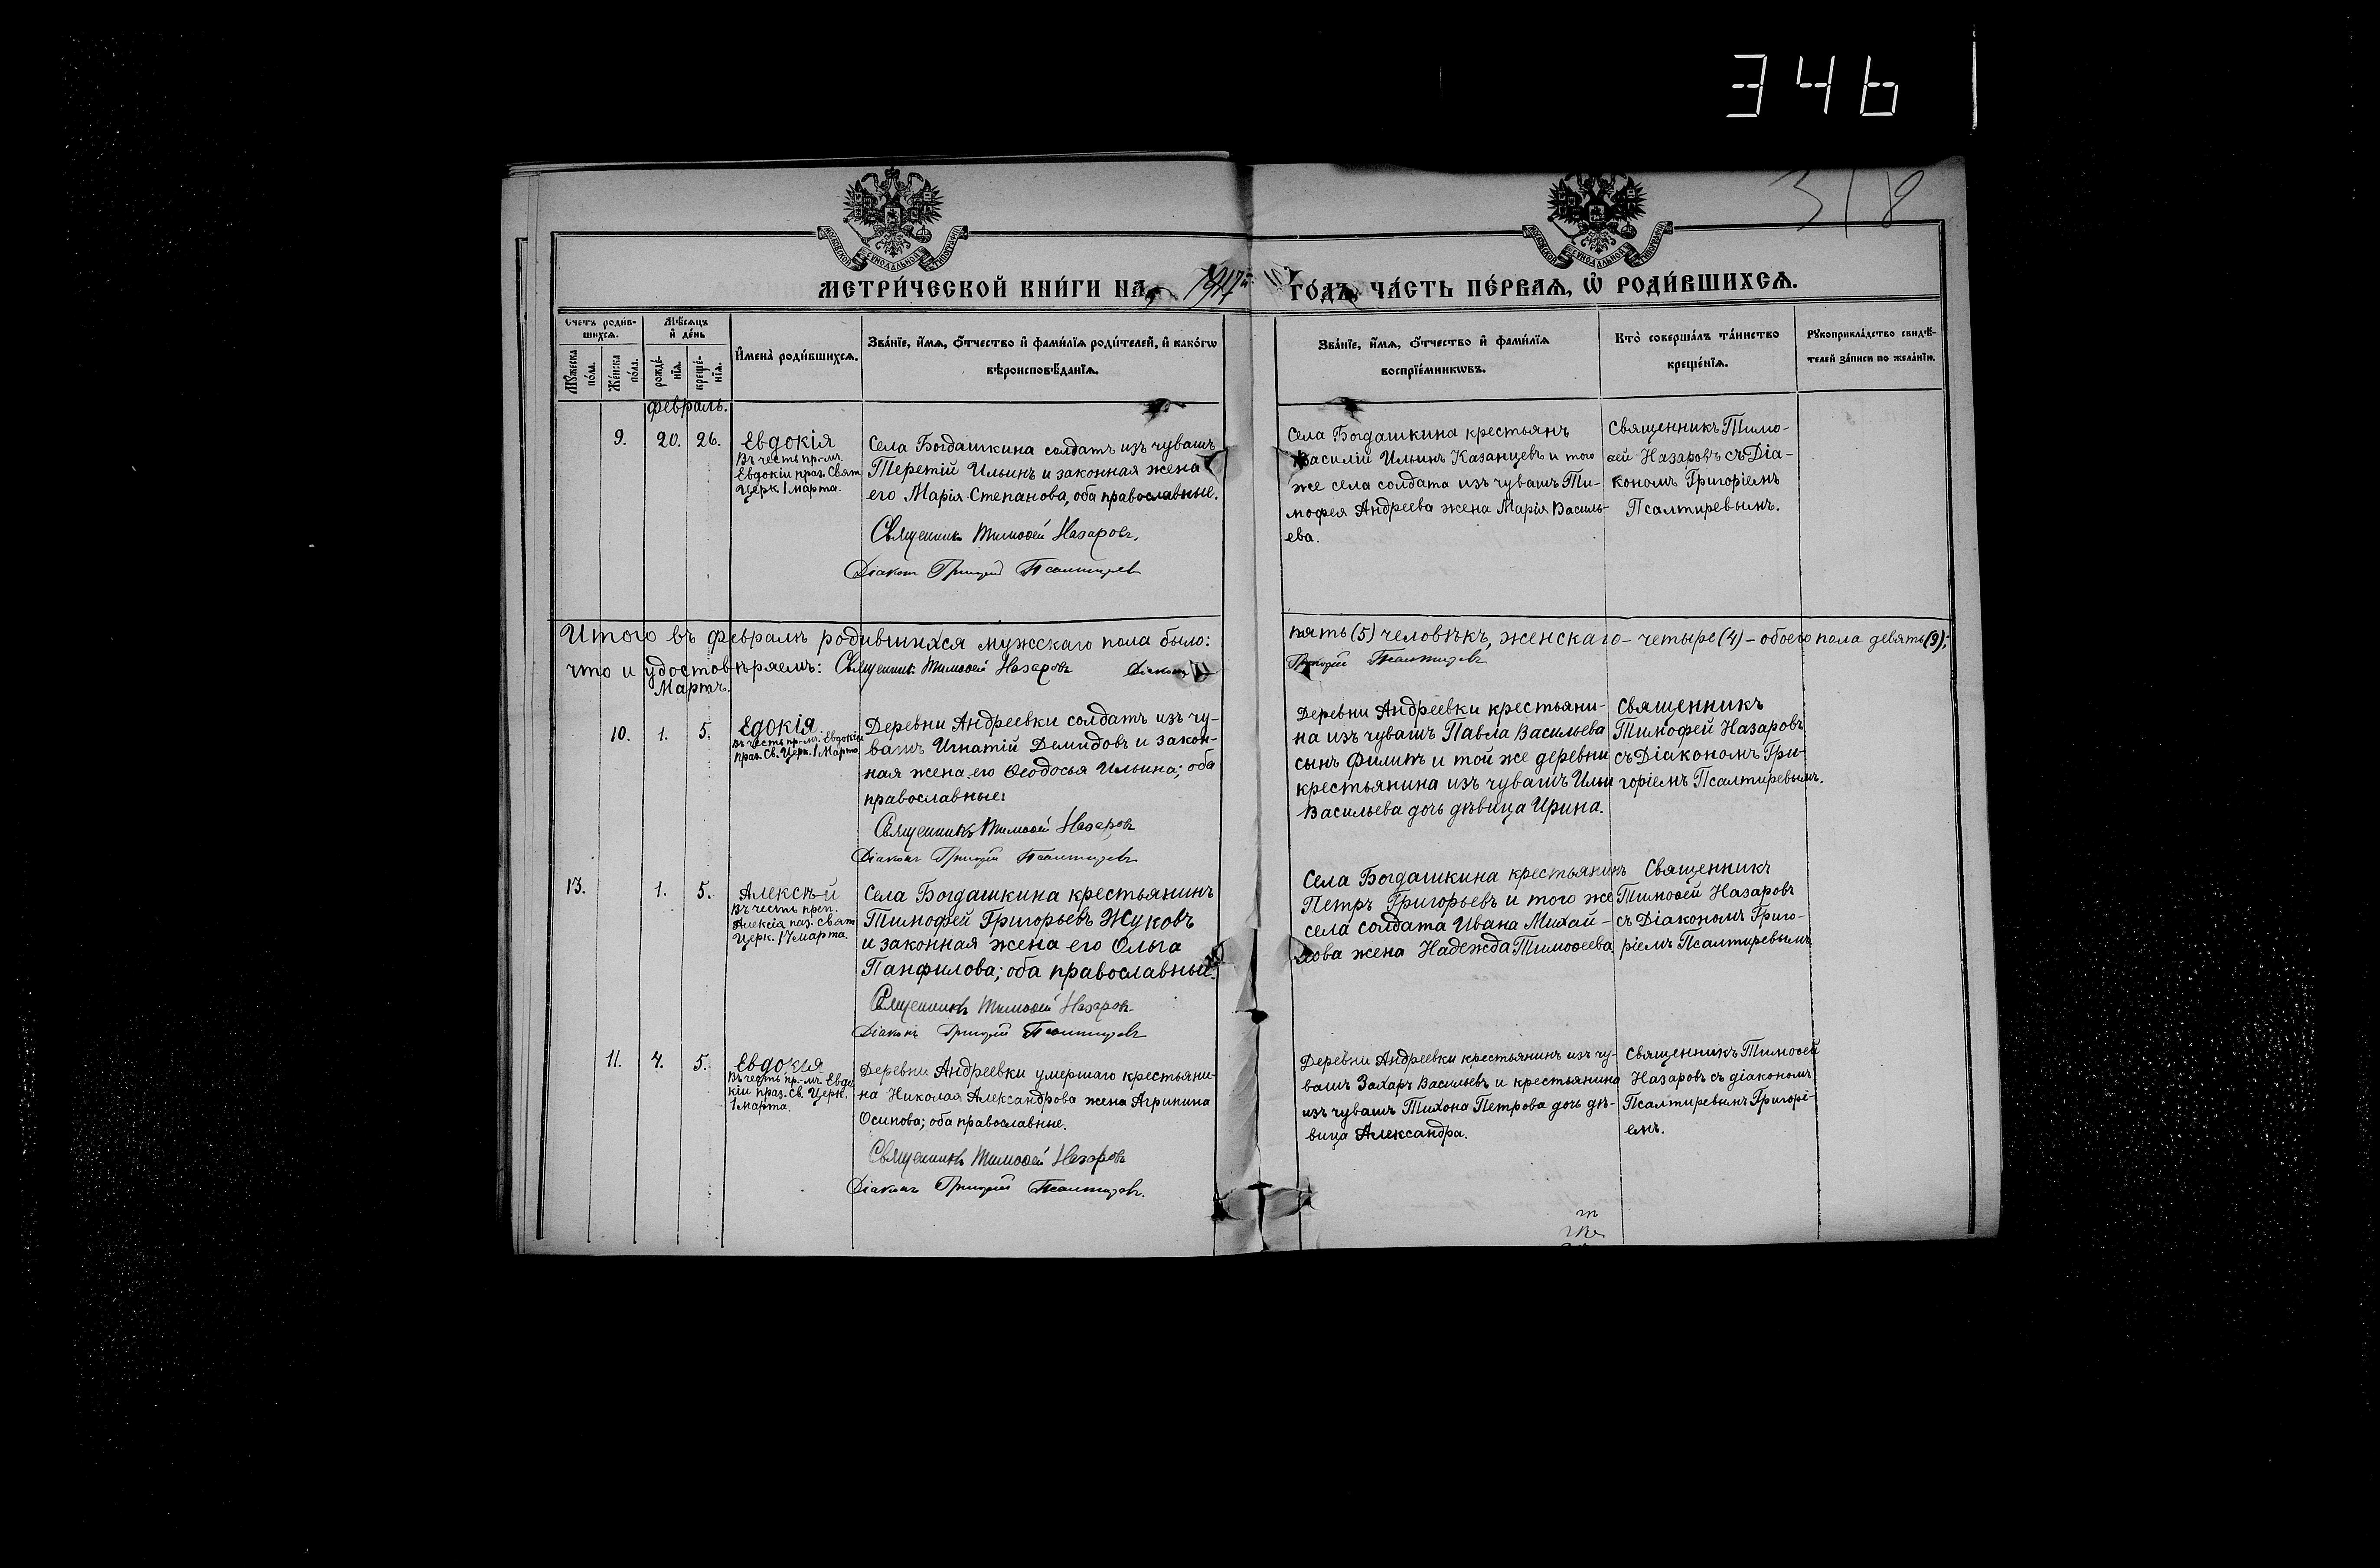 346
318
МОСКОВСКОЙ СѴНОДАЛЬНОЙ ТИПОГРАФІИ
МОСКОВСКОЙ СѴНОДАЛЬНОЙ ТИПОГРАФІИ
МЕТРИ́ЧЕСКОЙ КНИ́ГИ НА 1917й ГО́ДЪ, ЧА́СТЬ ПЕ́РВАѦ, Ѡ҆ РОДИ́ВШИХСѦ.
Счетъ роди́в-
шихсѧ.
Мꙋ́жеска
по́ла.
Же́нска
по́ла.
Мѣ́сѧцъ
и҆ де́нь
рожде́-
нїѧ.
креще́-
нїѧ.
И҆мена̀ роди́вшихсѧ.
Зва́нїе, и҆́мѧ, ѻ҆́тчество и҆ фами́лїѧ роди́телей, и҆ како́гѡ
вѣроисповѣ́данїѧ.
Зва́нїе, и҆́мѧ, ѻ҆́тчество и҆ фами́лїѧ
воспрїе́мникѡвъ.
Кто̀ соверша́лъ та́инство
креще́нїѧ.
Рꙋкоприкла́дство свидѣ́-
телей за́писи по жела́нїю.
Февраль.
9. 20. 26.
Евдокія
Въ честь пр.-мч.
Евдокіи праз. Свят.
Церк 1 марта.
Села Богдашкина солдатъ изъ чувашъ
Терентій Ильинъ и законная жена
его Марія Степанова, оба православные.
Священникъ Тимоѳей Назаровъ.
Діаконъ Григорій Псалтиревъ
Села Богдашкина крестьянъ
Василій Ильинъ Казанцевъ и того
же села солдата изъ чувашъ Ти-
мофея Андреева жена Марія Василь-
ева.
Священникъ Тимо-
ѳей Назаровъ съ Діа-
кономъ Григоріемъ
Псалтиревымъ.
Итого въ февралѣ родившихся мужскаго пола было: пять (5) человѣкъ, женскаго - четыре (4) - обоего пола девять (9);
что и удостовѣряемъ: Священникъ Тимоѳей Назаровъ Діаконъ Григорій Псалтиревъ
Мартъ.
10. 1. 5.
Едокія.
Въ честь пр.-мч. Евдокіи
праз. Св. Церк. 1 Марта
Деревни Андреевки солдатъ изъ чу-
вашъ Игнатій Демидовъ и закон-
ная жена его Ѳеодосья Ильина; оба
православные.
Священникъ Тимоѳей Назаровъ
Діаконъ Григорій Псалтиревъ
Деревни Андреевки крестьяни-
на изъ чувашъ Павла Васильева
сынъ Филипъ и той же деревни
крестьянина изъ чувашъ Ильи
Васильева дочь дѣвица Ирина.
Священникъ
Тимофей Назаровъ
съ Діакономъ Гри-
горіемъ Псалтиревымъ.
13. 1. 5.
Алексѣй
Въ честь преп.
Алексія паз. Свят
Церк. 17 марта.
Села Богдашкина крестьянинъ
Тимофей Григорьевъ Жуковъ
и законная жена его Ольга
Панфилова; оба православные.
Священникъ Тимоѳей Назаровъ
Діаконъ Григорій Псалтиревъ
Села Богдашкина крестьянинъ
Петръ Григорьевъ и того же
села солдата Ивана Михай-
лова жена Надежда Тимоѳеева
Священникъ
Тимоѳей Назаровъ
съ Діакономъ Григо-
ріемъ Псалтиревымъ
11. 4. 5.
Евдокія
Въ честь пр.-мч. Евдо
кіи праз. Св. Церк.
1 марта.
Деревни Андреевки умершаго крестьяни-
на Николая Александрова жена Агрипина
Осипова; оба православные.
Священникъ Тимоѳей Назаровъ
Діаконъ Григорій Псалтиревъ.
Деревни Андреевки крестьянинъ изъ чу-
вашъ Захаръ Васильевъ и крестьянина
изъ чувашъ Тихона Петрова дочь дѣ-
вица Александра.
Священникъ Тимоѳей
Назаровъ съ діакономъ
Псалтиревымъ Григорі-
емъ.